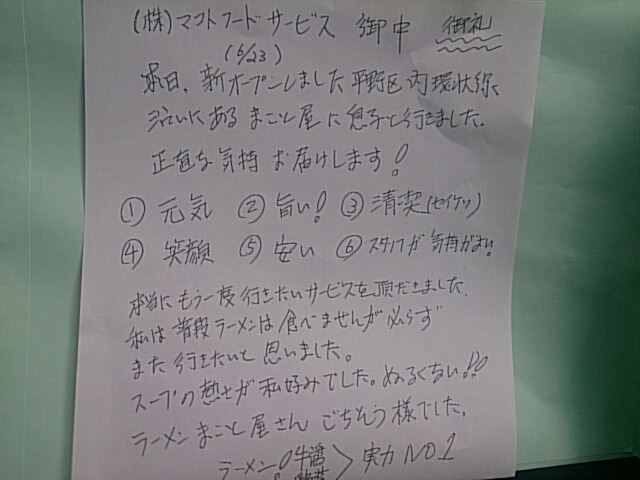 (株)マコトフードサービス 御中 御礼
(6/23)
本日、新オープンしました平野区内環状線
沿いにあるまこと屋に息子と行きました。
正直な気持お届けします!
① 元気 ② 旨い! ③ 清潔(セイケツ)
④ 笑顔 ⑤ 安い ⑥ スタッフが気持がよい。
本当にもう一度行きたいサービスを頂だきました。
私は普段ラーメンは食べませんが必らず
また行きたいと思いました。
スープの熱さが私好みでした。ぬるくない!!
ラーメンまこと屋さんごちそう様でした。
ラーメン 牛醤 > 実力NO.1